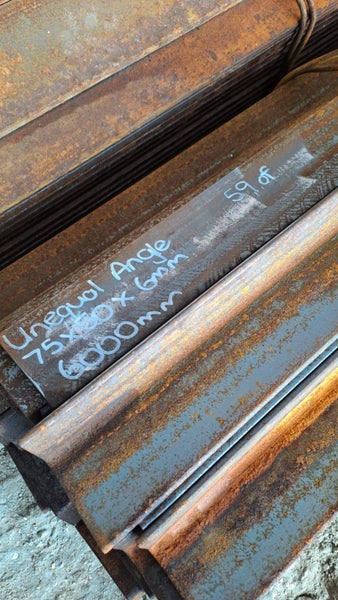 Unequal Angle
75x50x6mm
6000mm
59 of